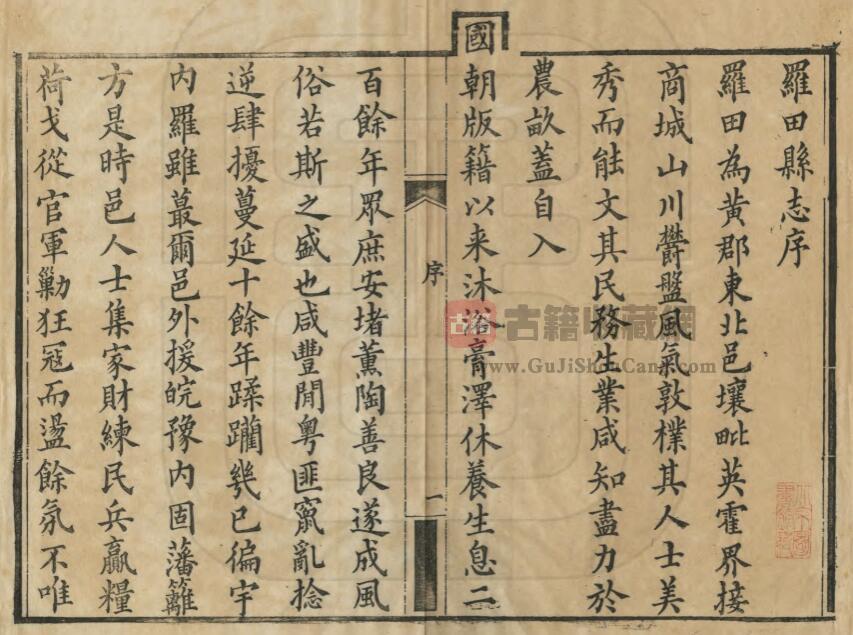 羅田縣志序
羅田為黃郡東北邑壤毗英霍界接
商城山川欝盤風氣敦樸其人士美
秀而能文其民務生業咸知盡力於
農畝蓋自入
國朝版籍以来沐浴膏澤休養生息二
序
一
百餘年眾庶安堵薰陶善良遂成風
俗若斯之盛也咸豐間粵匪竄亂捻
逆肆擾蔓延十餘年蹂躪幾已徧宇
內羅雖蕞爾邑外援皖豫內固藩籬
方是時邑人士集家財練民兵贏糧
荷戈從官軍勦狂冦而盪餘氛不唯
古籍 古籍收藏網
www.GuJiShouCang.com